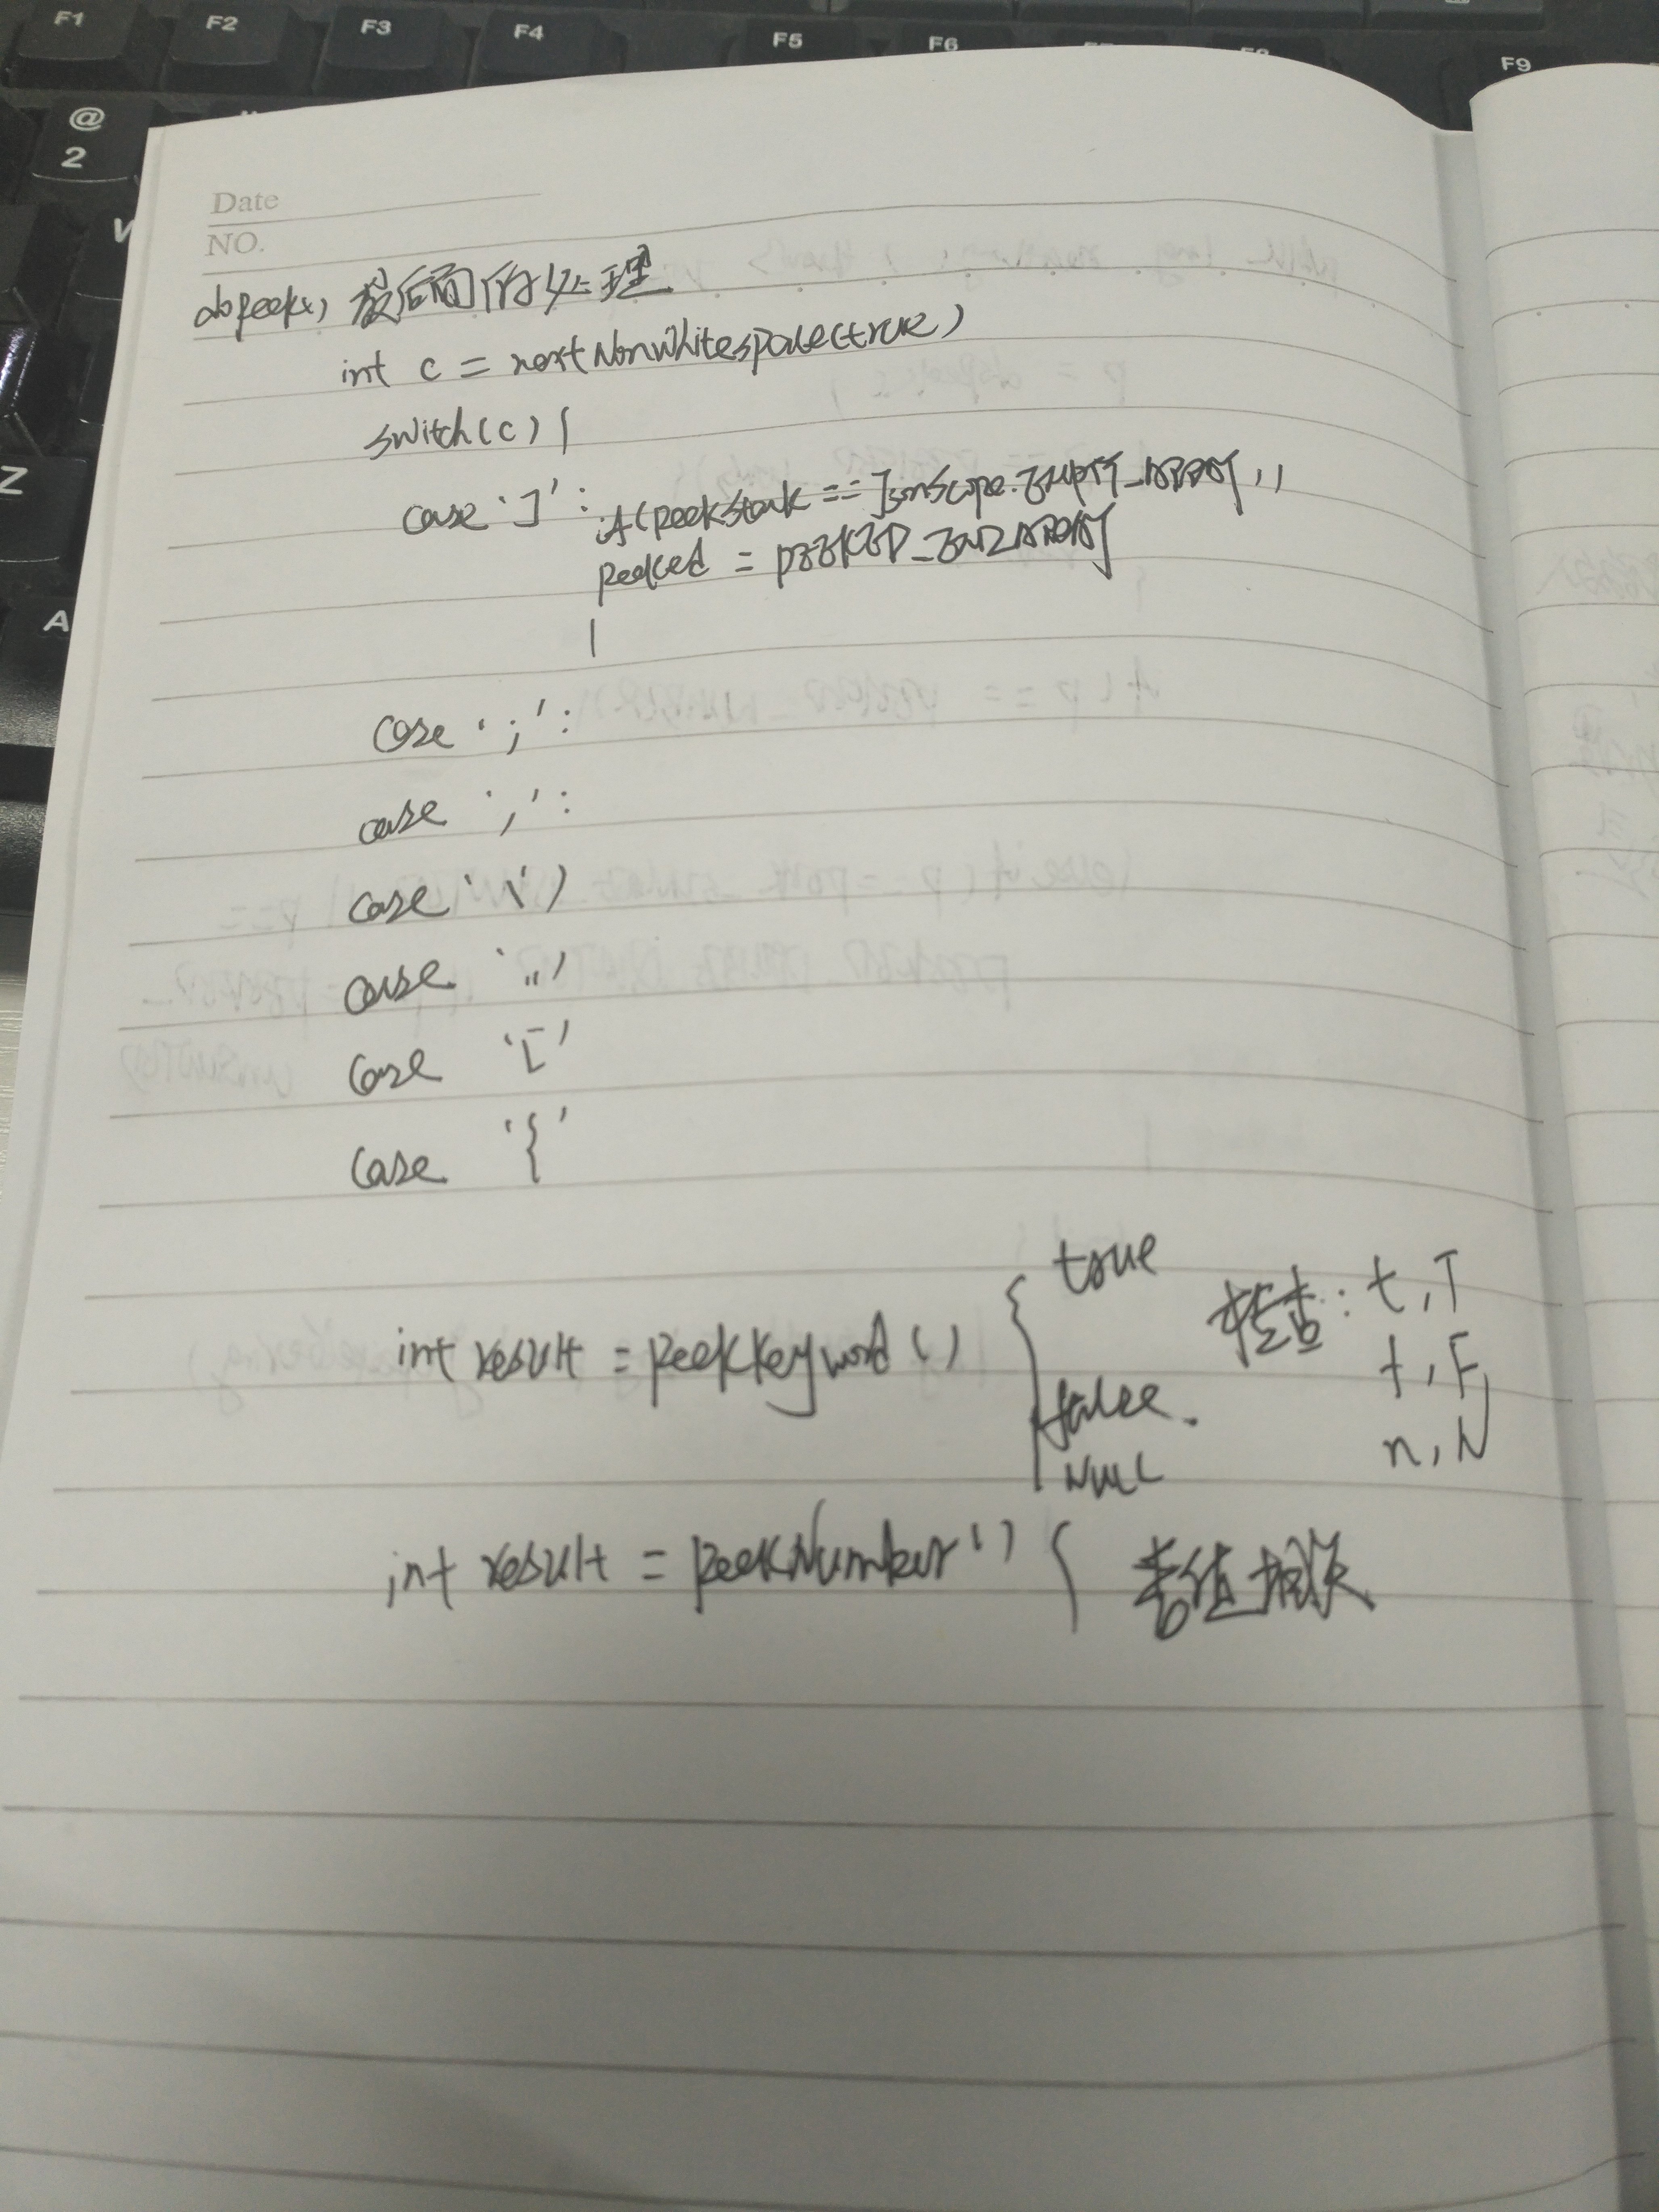 F1 F2 F3 F4 F5 F6 F9
@
2
Z
A
Date
NO.
doPeek() 最后面的处理
int c = nextNonWhitespace(true)
switch(c) {
case ']' : if(peekStack == JsonScope.EMPTY_ARRAY))
peeked = PEEKED_END_ARRAY
}
case ';':
case ',':
case '\'
case '"'
case '['
case '{'
int result = peekKeyword() { true
false.
NULL
: t,T
f,F
n,N
int result = peekNumber() {